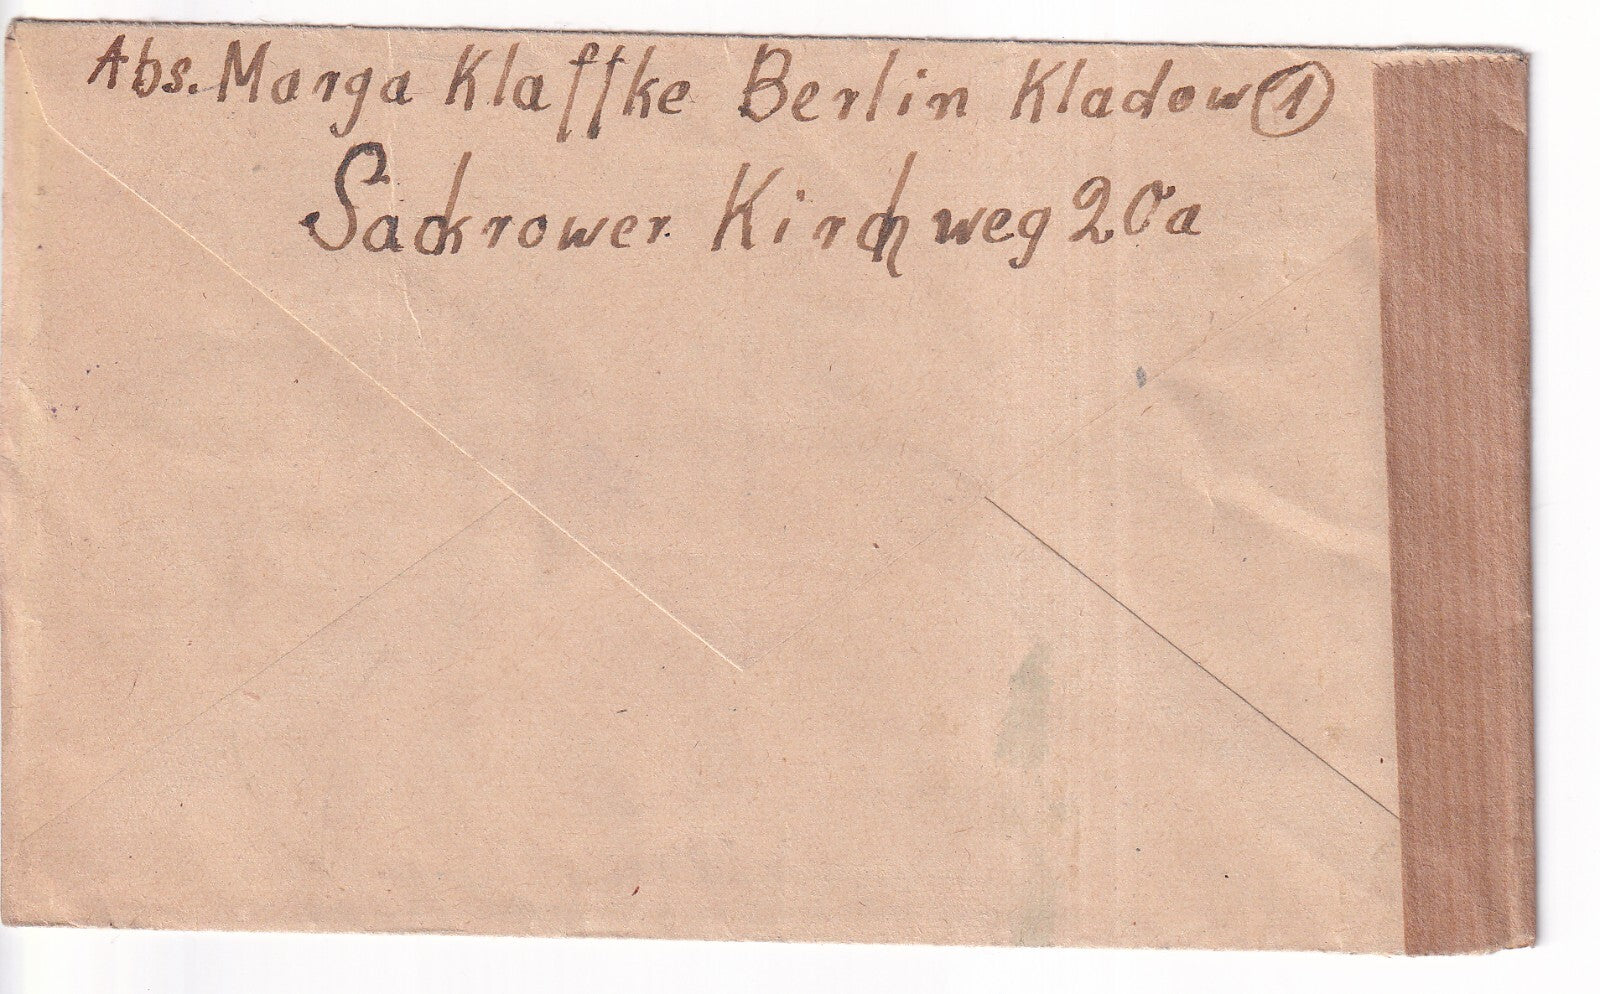 Abs. Marga Klaffke Berlin Kladow 1
Sackrower Kirchweg 20a